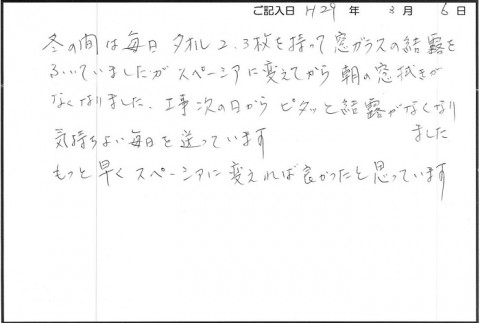 ご記入日 H29 年 3月 6日
冬の間は毎日 タオル 2.3枚を持って窓ガラスの結露を
ふいていましたが スペーシアに変えてから 朝の窓拭きが
なくなりました. 工事次の日から ピタッと結露がなくなり
ました
気持ちよい毎日を送っています
もっと早くスペーシアに変えれば良かったと思っています